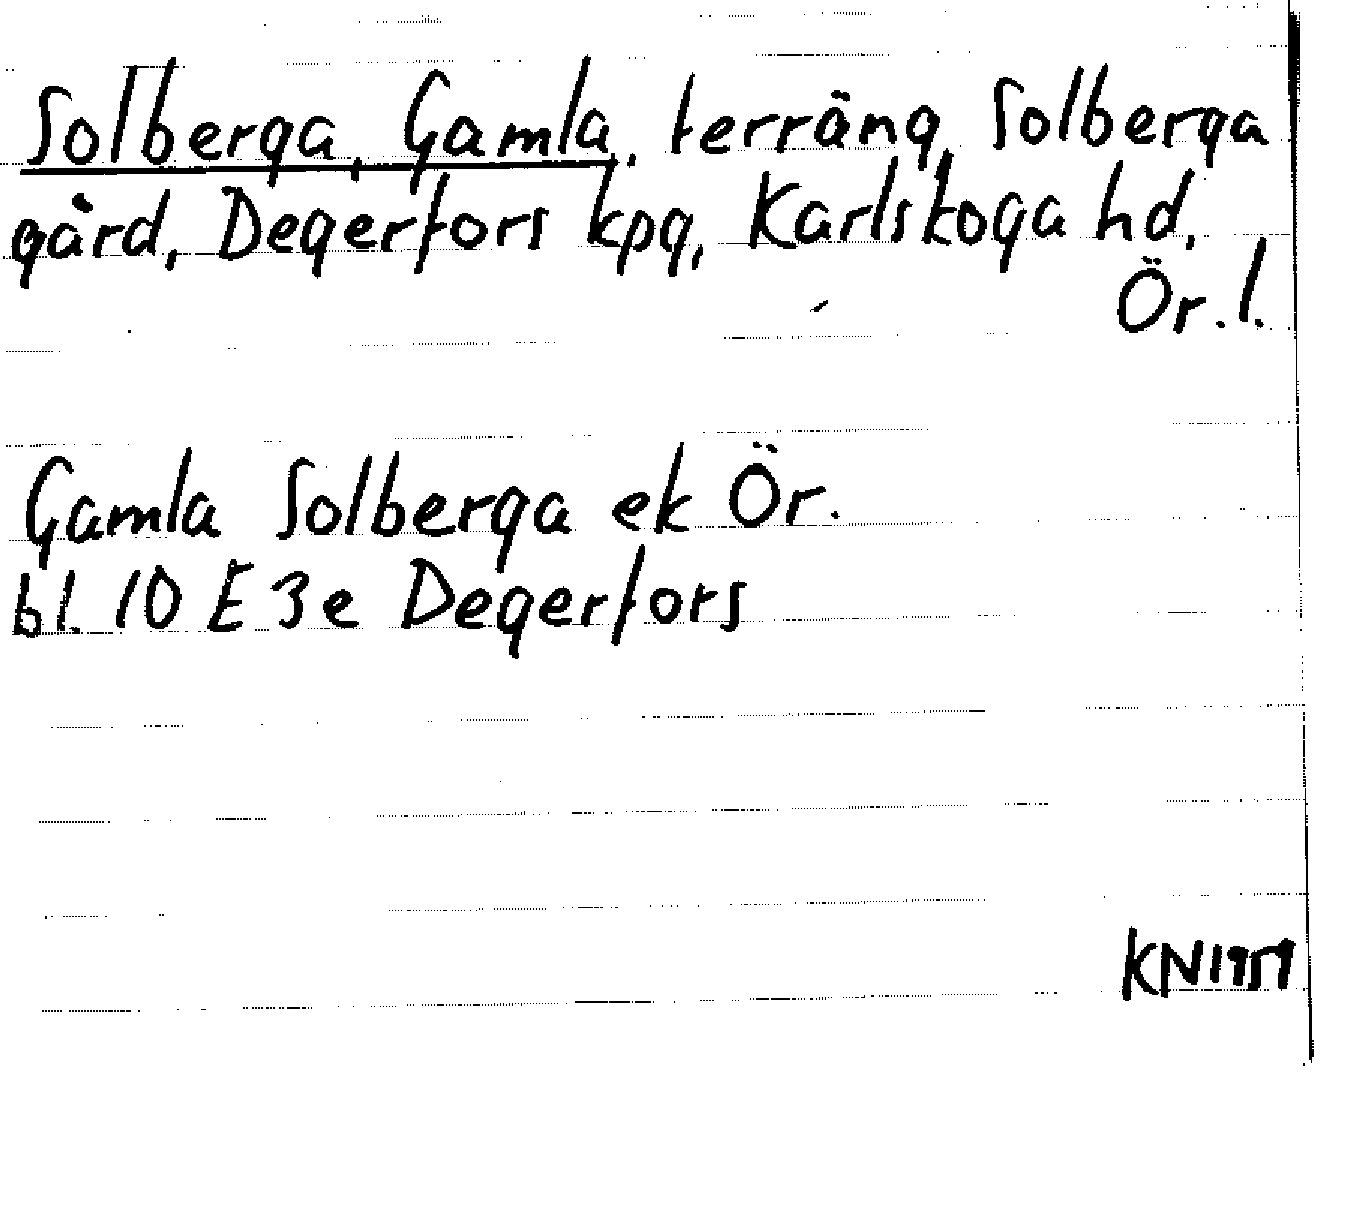 Solberga, Gamla, terräng, Solberga
gård, Degerfors kpg, Karlskoga hd,
Ör. l.
Gamla Solberga ek Ör.
bl. 10 E 3 e Degerfors
KN 1959